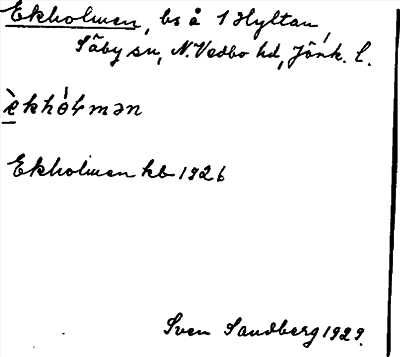 Ekholmen, bs å 1 Hyltan,
Säby sn, N. Vedbo hd, Jönk. l.
èkhólmən
Ekholmen kb 1926
Sven Sandberg 1929.